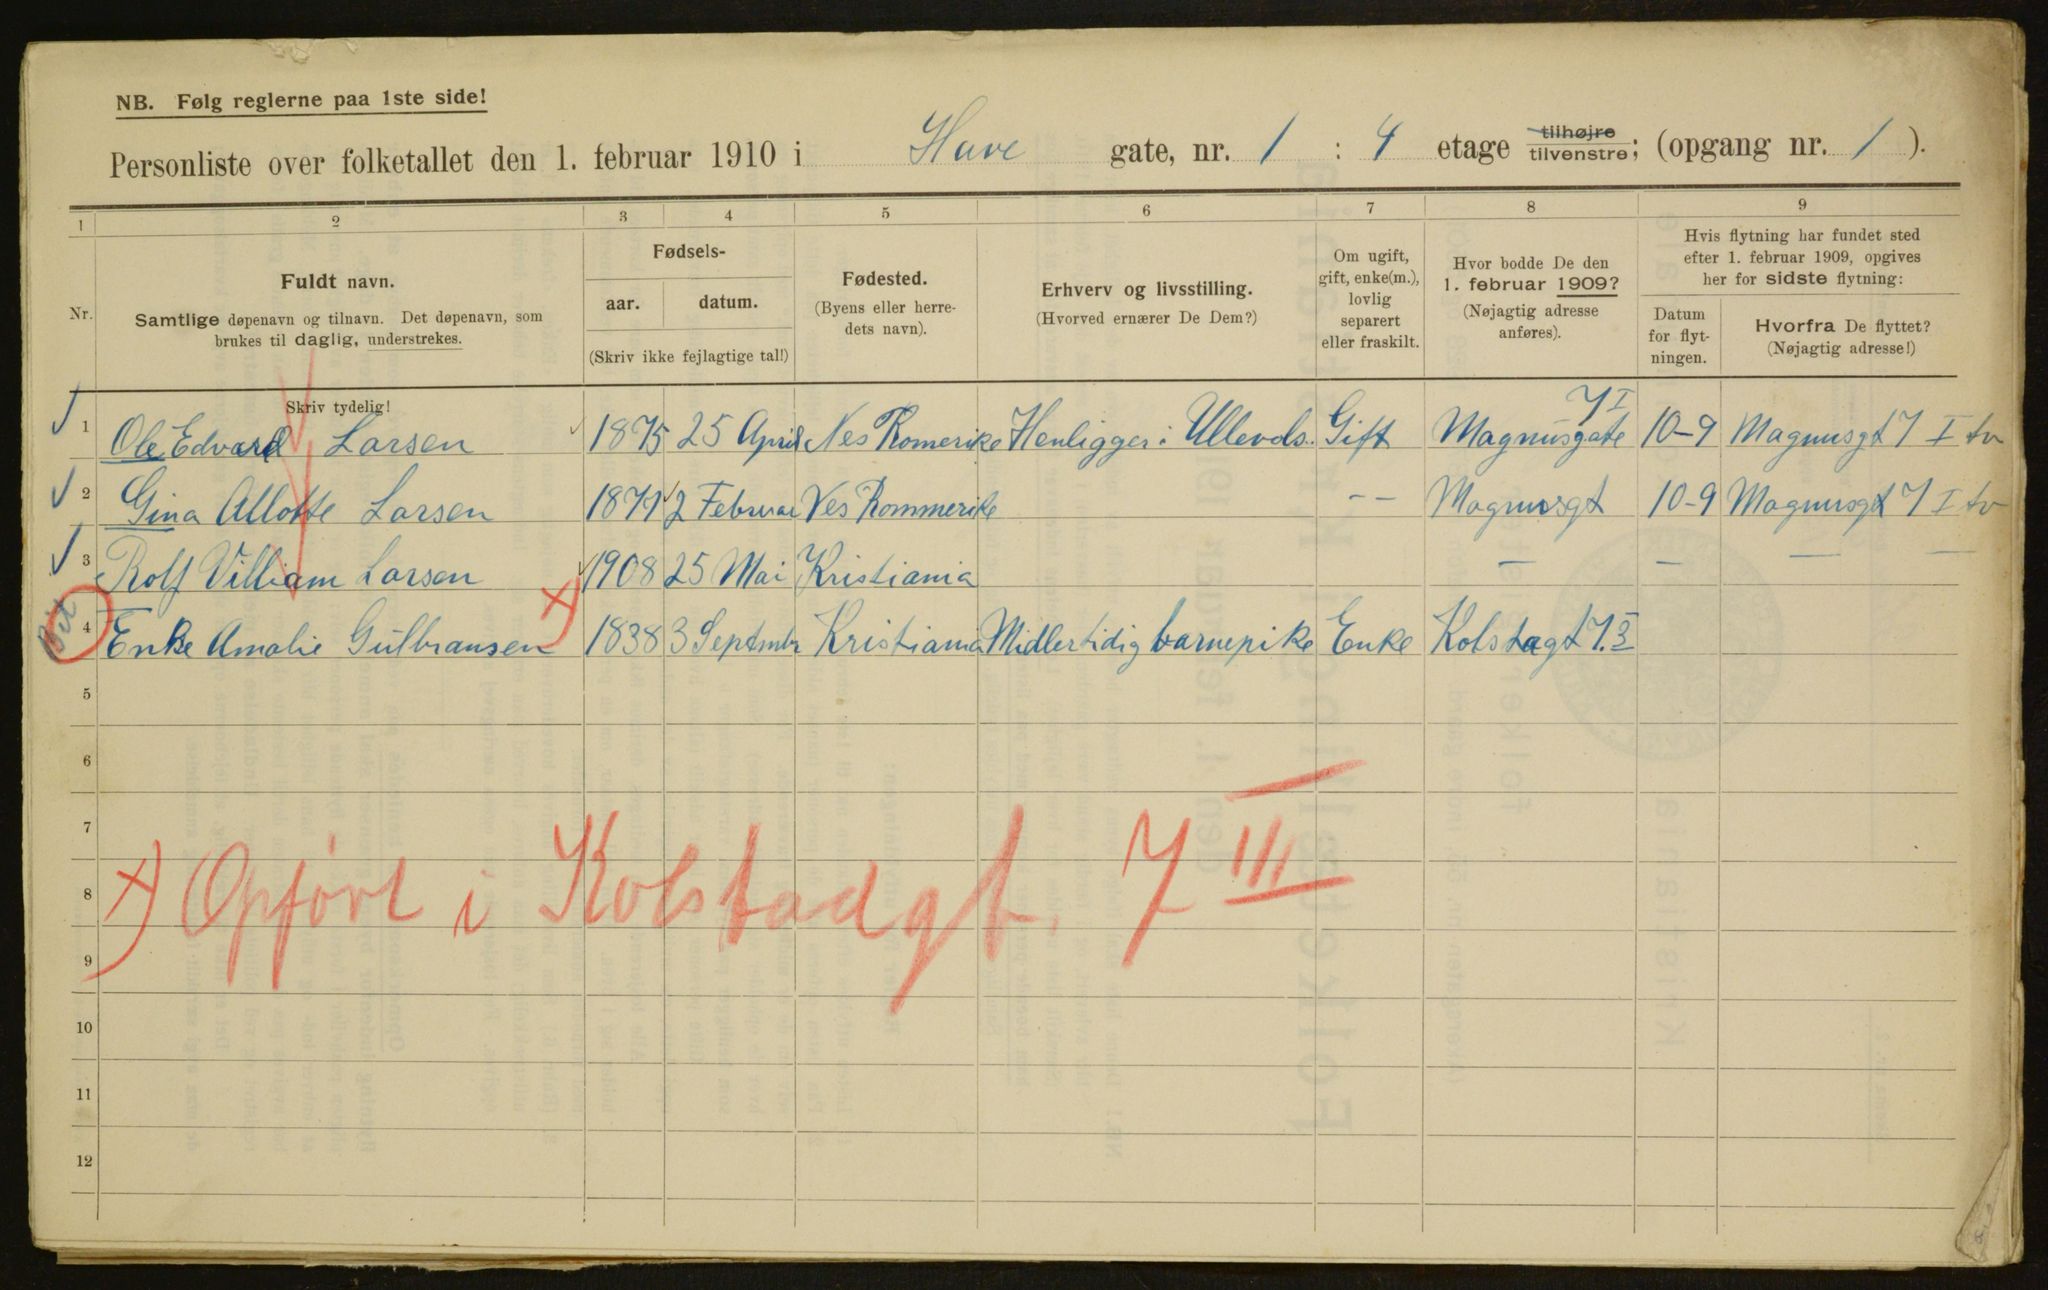 NB. Følg reglerne paa 1ste side!
Personliste over folketallet den 1. februar 1910 i Have gate, nr. 1 : 4 etage tilhøjre tilvenstre; (opgang nr. 1 ).
1 2 3 4 5 6 7 8 9
Nr.
Fuldt navn.
Samtlige døpenavn og tilnavn. Det døpenavn, som
brukes til daglig, understrekes.
Skriv tydelig!
Fødsels-
aar. datum.
(Skriv ikke fejlagtige tal!)
Fødested.
(Byens eller herre-
dets navn).
Erhverv og livsstilling.
(Hvorved ernærer De Dem?)
Om ugift,
gift, enke(m.),
lovlig
separert
eller fraskilt.
Hvor bodde De den
1. februar 1909?
(Nøjagtig adresse
anføres).
Hvis flytning har fundet sted
efter 1. februar 1909, opgives
her for sidste flytning:
Datum
for flyt-
ningen.
Hvorfra De flyttet?
(Nøjagtig adresse!)
1 Ole Edvard Larsen 1875 25 April Nes Romerike Henligger i Ullevols. Gift Magnusgate 7 I 10-9 Magnusgt 7 I tv
2 Gina Allotte Larsen 2 Februar Nes Rommerike -- Magnusgt 10-9 Magnusgt 7 I tv
3 Rolf Villiam Larsen 1908 25 Mai Kristiania — — — —
4 Enke Amalie Gulbransen x) 1838 3 Septmbr Kristiania Midlertidig barnepike Enke Kolstagt 7.3
5
6
7
8
9
10
11
12
x) Opført i Kolstadgt. 7 III